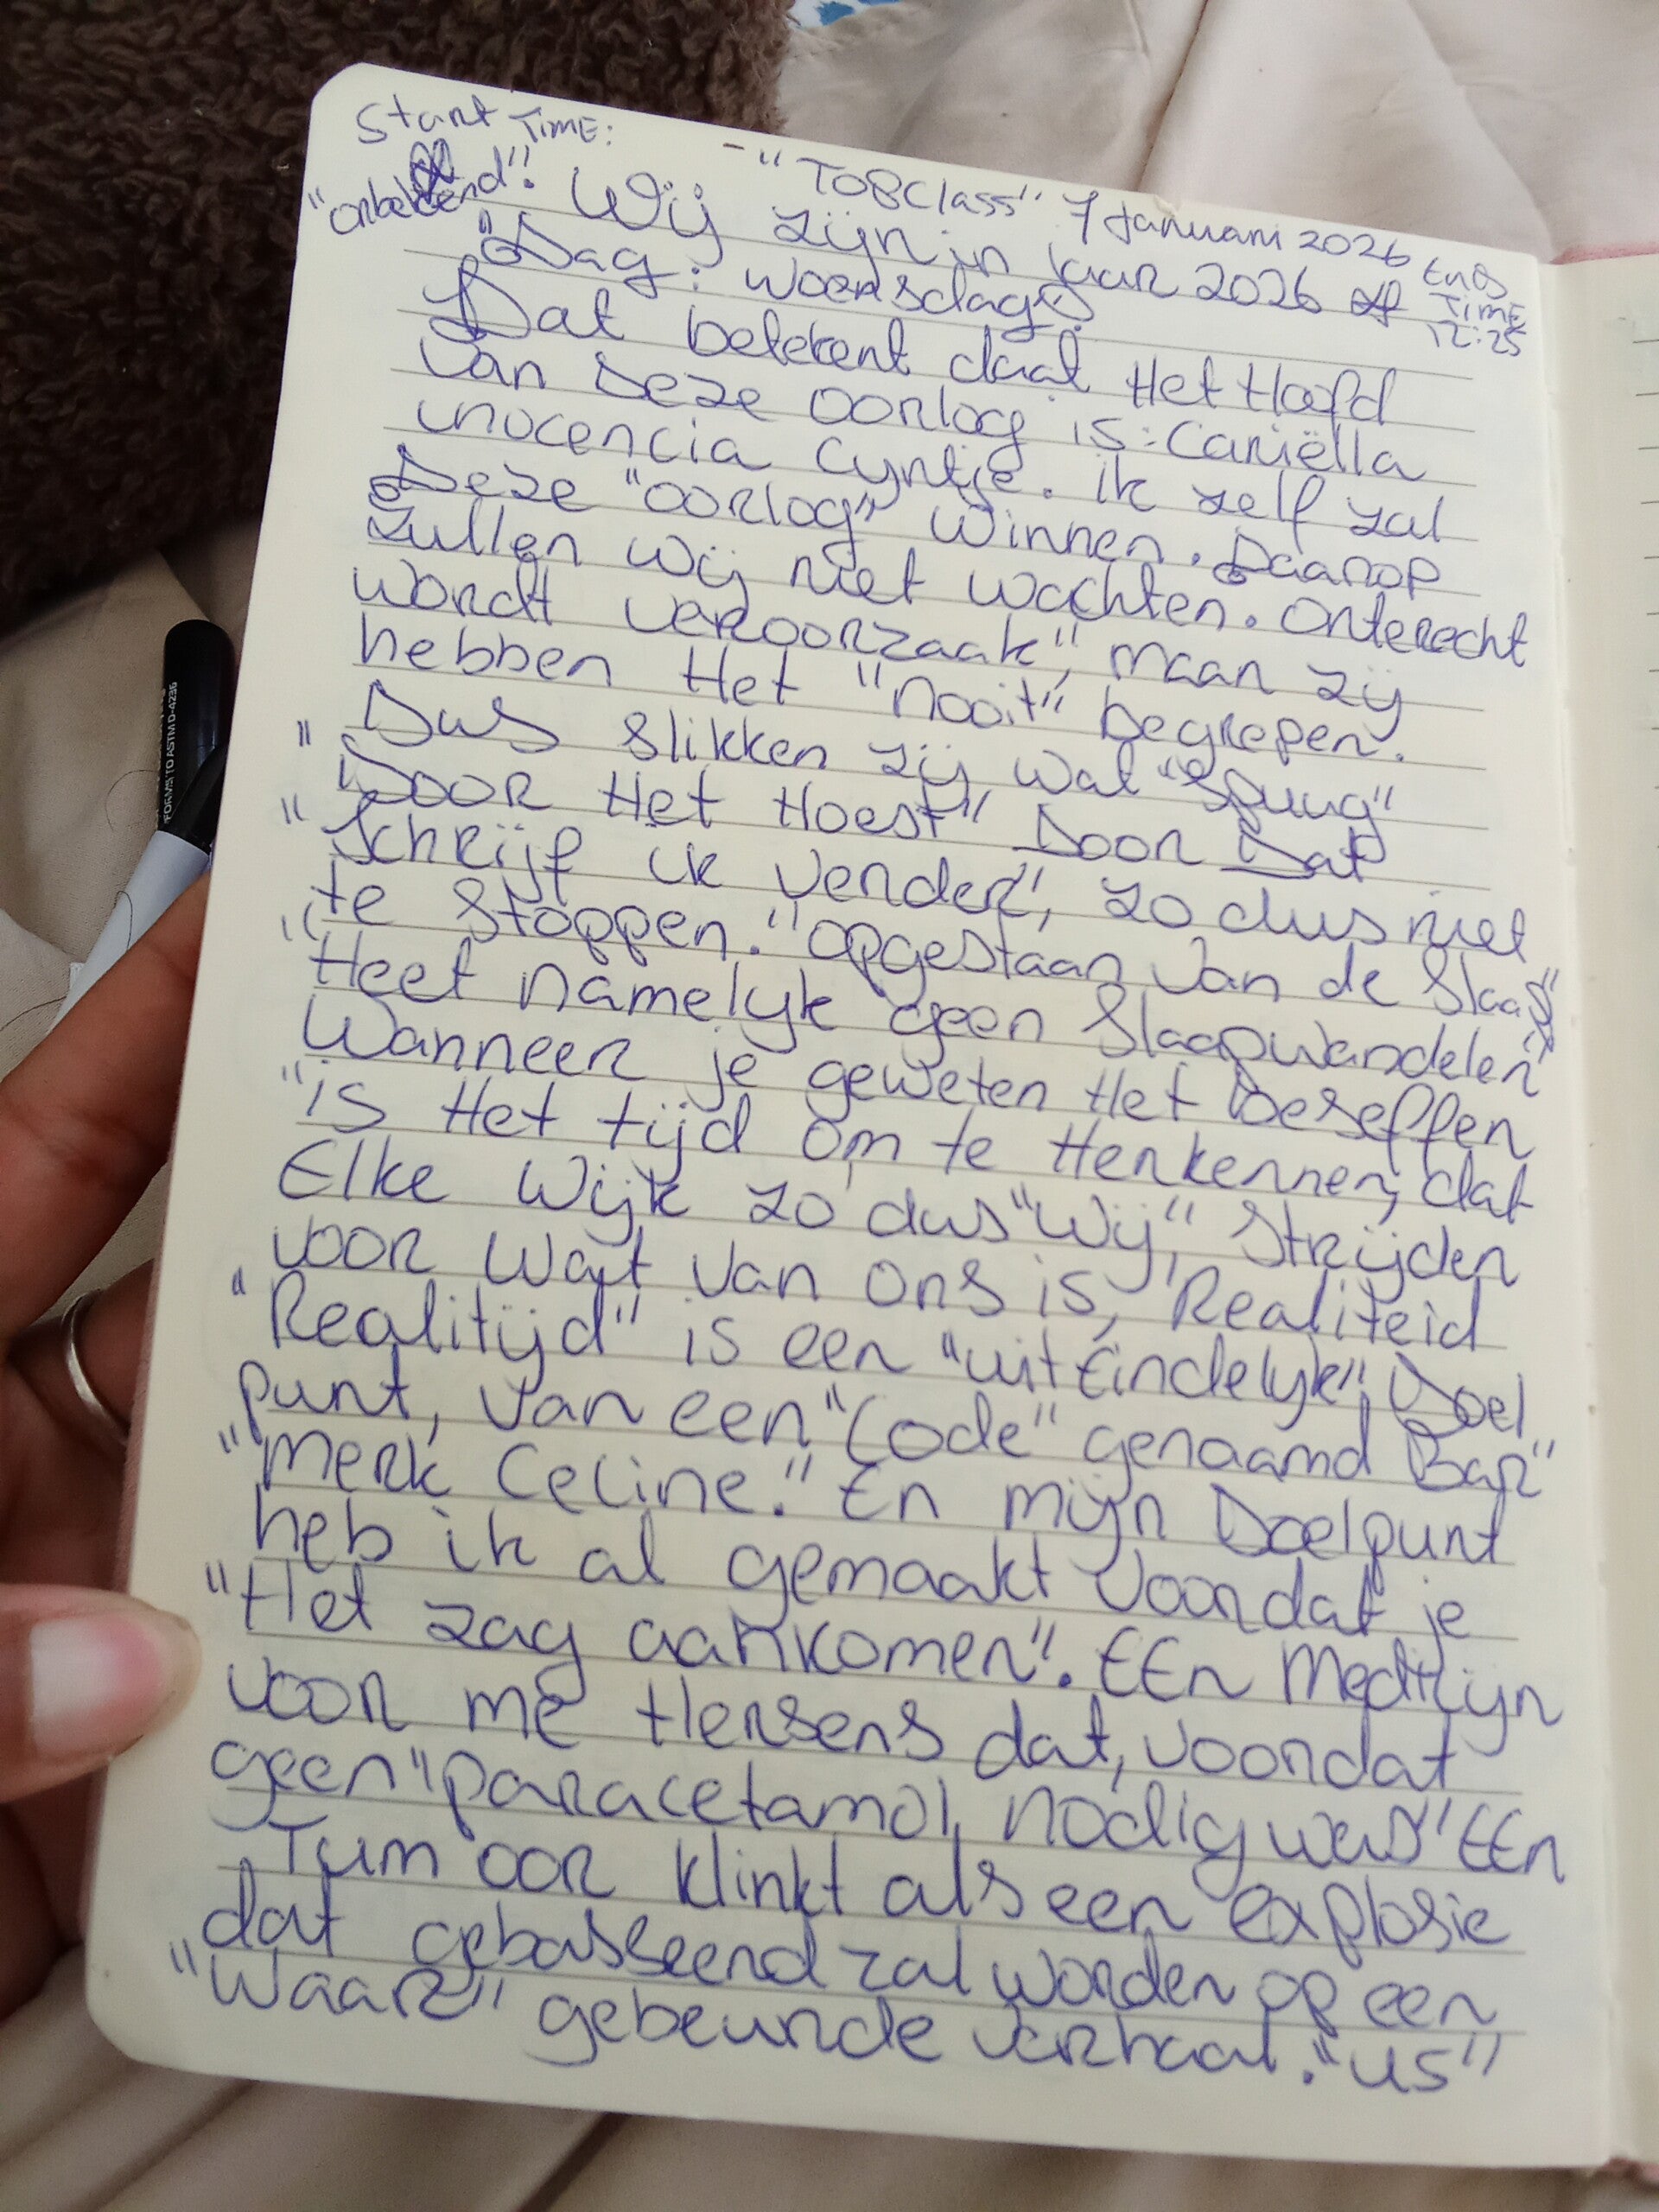 Start TIME:
"onbekend".
- "TOBClass" 7 Januari 2026
Ends TIME 12:25
Wij zijn in jaar 2026
"Dag: woensdag".
Dat betekent daat Het Hoofd
van deze oorlog is: Cariëlla
inocencia Cyntje. ik zelf zal
Deze "oorlog" winnen. Daarop
zullen wij niet wachten. Onterecht
wordt veroorzaak", maar zij
hebben Het "nooit" begrepen.
Dus slikken zij wat "Spuug"
"Door Het Hoest" Door Dat
"Schrijf ik verder", zo dus niet
te stoppen. "opgestaan van de Slaap"
"Heet namelijk geen Slaapwandelen"
Wanneer je geweten Het beseffen
"is Het tijd om te Herkennen, dat
Elke Wijk zo dus "Wij", Strijden
voor Wat van ons is, Realiteid
"Realitijd" is een "uitEindelijk" Doel
punt, van een "Code" genaamd Bar"
"Merk Celine." En mijn Doelpunt
heb ik al gemaakt voordat je
"Het zag aankomen". EEn Medicijn
voor me Hersens dat, voordat
geen "paracetamol nodig was" EEn
Tum oor klinkt als een explosie
dat gebasseerd zal worden op een
"Waar" gebeurde verhaal. "us"
FORMS TO ASTM D-4236